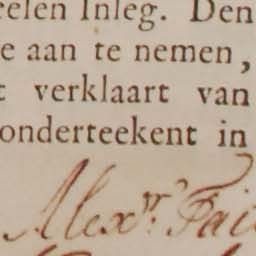 eelen Inleg. Den
e aan te nemen,
t verklaart van
onderteekent in
Alexr. Fai